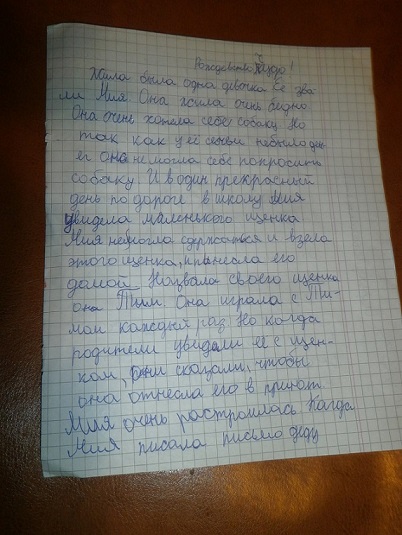 Рождественское Чудо!
Жила была одна девочка Её зва-
ли Мия. Она жила очень бедно.
Она очень хотела себе собаку. Но
так как у её семьи небыло ден
ег она не могла себе попросить
собаку. И в один прекрасный
день по дороге в школу Мия
увидела маленького щенка
Мия не смогла сдержаться и взела
этого щенка, и пренесла его
домой. Назвала своего щенка
она Тим. Она играла с Ти-
мом каждый раз Но когда
родители увидали её с щен-
ком, они сказали, чтобы
она отнесла его в приют
Мия очень растроилась Кагда
Мия писала письмо деду